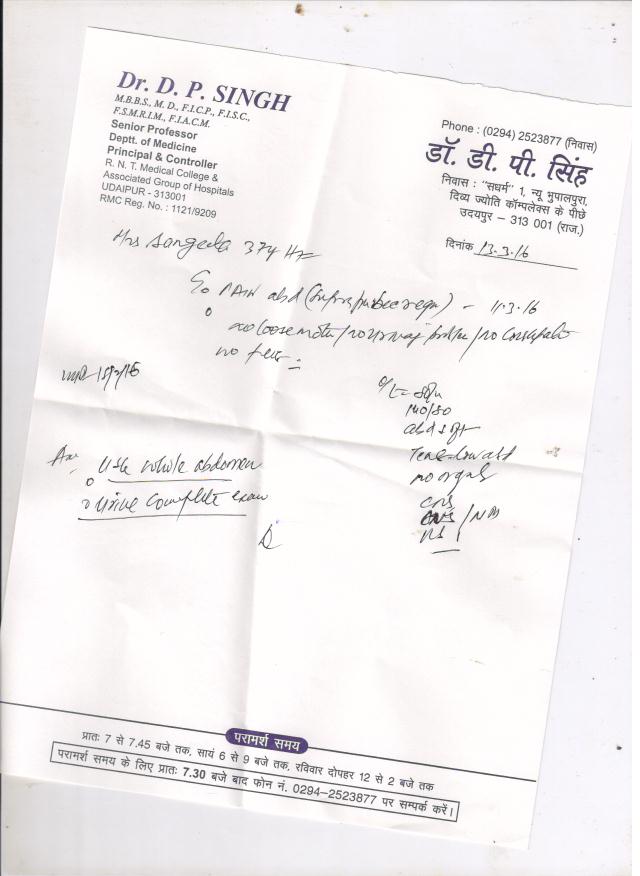 Dr. D. P. SINGH
M.B.B.S., M. D., F.I.C.P., F.I.S.C.,
F.S.M.R.I.M., F.I.A.C.M.
Senior Professor
Deptt. of Medicine
Principal & Controller
R. N. T. Medical College &
Associated Group of Hospitals
UDAIPUR - 313001
RMC Reg. No. : 1121/9209
Phone : (0294) 2523877 (निवास)
डॉ. डी. पी. सिंह
निवास : "सधर्म" 1, न्यू भुपालपुरा,
दिव्य ज्योति कॉम्पलेक्स के पीछे
उदयपुर – 313 001 (राज.)
दिनांक 13.3.16
Mrs Sangeela 37y
abd (suprapubic region) - 11.3.16
no loose motion / no urinary problem / no constipation
no fever
140/80
abd soft
low abd
no
CNS
/ NAD
RS
USG whole abdomen
Urine complete exam
परामर्श समय
प्रातः 7 से 7.45 बजे तक, सायं 6 से 9 बजे तक, रविवार दोपहर 12 से 2 बजे तक
परामर्श समय के लिए प्रातः 7.30 बजे बाद फोन नं. 0294–2523877 पर सम्पर्क करें।